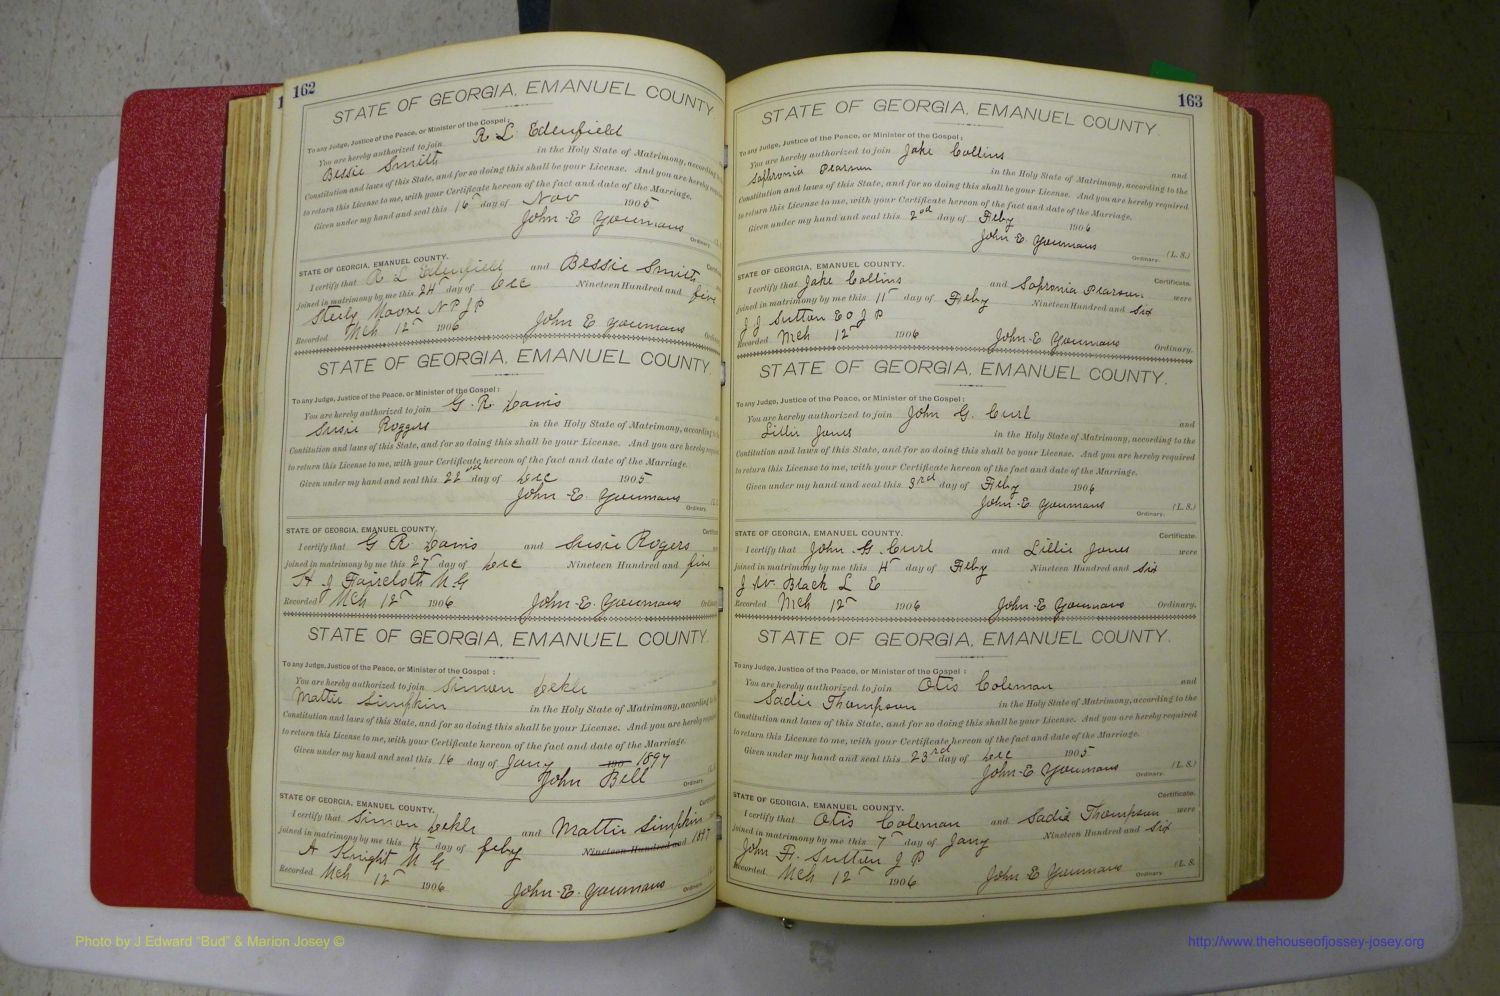 162
STATE OF GEORGIA, EMANUEL COUNTY.
To any Judge, Justice of the Peace, or Minister of the Gospel:
You are hereby authorized to join R. L. Edenfield
Bessie Smith in the Holy State of Matrimony, according
Constitution and laws of this State, and for so doing this shall be your License. And you are hereby
to return this License to me, with your Certificate hereon of the fact and date of the Marriage.
Given under my hand and seal this 16 day of Nov 1905
John E Youmans
Ordinary.
STATE OF GEORGIA, EMANUEL COUNTY.
I certify that R L Edenfield and Bessie Smith
joined in matrimony by me this 24 day of Dec Nineteen Hundred and five
Moore N P J P
Recorded Mch 12 1906 John E Youmans
STATE OF GEORGIA, EMANUEL COUNTY.
To any Judge, Justice of the Peace, or Minister of the Gospel:
You are hereby authorized to join G. R. Davis
Susie Roggers in the Holy State of Matrimony, according to
Constitution and laws of this State, and for so doing this shall be your License. And you are hereby
to return this License to me, with your Certificate hereon of the fact and date of the Marriage.
Given under my hand and seal this 22nd day of Dec 1905
John E Youmans
Ordinary.
STATE OF GEORGIA, EMANUEL COUNTY.
I certify that G R Davis and Susie Rogers
joined in matrimony by me this 27 day of Dec Nineteen Hundred and five
H J Faircloth M G
Recorded Mch 12 1906 John E. Youmans
STATE OF GEORGIA, EMANUEL COUNTY.
To any Judge, Justice of the Peace, or Minister of the Gospel:
You are hereby authorized to join Simon Dekle
Mattie Simpkin in the Holy State of Matrimony, according to
Constitution and laws of this State, and for so doing this shall be your License. And you are hereby
to return this License to me, with your Certificate hereon of the fact and date of the Marriage.
Given under my hand and seal this 16 day of Jany 190 1897
John Bell
Ordinary.
STATE OF GEORGIA, EMANUEL COUNTY.
I certify that Simon Dekle and Mattie Simpkin
joined in matrimony by me this 4 day of feby Nineteen Hundred and 1897
A Knight M G
Recorded Mch 12 1906 John E. Youmans
163
STATE OF GEORGIA, EMANUEL COUNTY.
To any Judge, Justice of the Peace, or Minister of the Gospel:
You are hereby authorized to join Jake Collins and
Saphronia Pearson in the Holy State of Matrimony, according to the
Constitution and laws of this State, and for so doing this shall be your License. And you are hereby required
to return this License to me, with your Certificate hereon of the fact and date of the Marriage.
Given under my hand and seal this 2nd day of Feby 1906
John E Youmans (L. S.)
Ordinary.
STATE OF GEORGIA, EMANUEL COUNTY. Certificate.
I certify that Jake Collins and Sapronia Pearson were
joined in matrimony by me this 11 day of Feby Nineteen Hundred and six
J J Sutton E O J P
Recorded Mch 12 1906 John E Youmans Ordinary.
STATE OF GEORGIA, EMANUEL COUNTY.
To any Judge, Justice of the Peace, or Minister of the Gospel:
You are hereby authorized to join John G. Curl and
Lillie Jones in the Holy State of Matrimony, according to the
Constitution and laws of this State, and for so doing this shall be your License. And you are hereby required
to return this License to me, with your Certificate hereon of the fact and date of the Marriage.
Given under my hand and seal this 3rd day of Feby 1906
John E Youmans (L. S.)
Ordinary.
STATE OF GEORGIA, EMANUEL COUNTY. Certificate.
I certify that John G. Curl and Lillie Jones were
joined in matrimony by me this 4 day of Feby Nineteen Hundred and six
J W. Black L E
Recorded Mch 12 1906 John E Youmans Ordinary.
STATE OF GEORGIA, EMANUEL COUNTY.
To any Judge, Justice of the Peace, or Minister of the Gospel:
You are hereby authorized to join Otis Coleman and
Sadie Thompson in the Holy State of Matrimony, according to the
Constitution and laws of this State, and for so doing this shall be your License. And you are hereby required
to return this License to me, with your Certificate hereon of the fact and date of the Marriage.
Given under my hand and seal this 23rd day of Dec 1905
John E Youmans (L. S.)
Ordinary.
STATE OF GEORGIA, EMANUEL COUNTY. Certificate.
I certify that Otis Coleman and Sadie Thompson were
joined in matrimony by me this 7 day of Jany Nineteen Hundred and six
John H. Sutton J P
Recorded Mch 12 1906 John E Youmans (L. S.
Ordinary.
Photo by J Edward "Bud" & Marion Josey ©
http://www.thehouseofjossey-josey.org